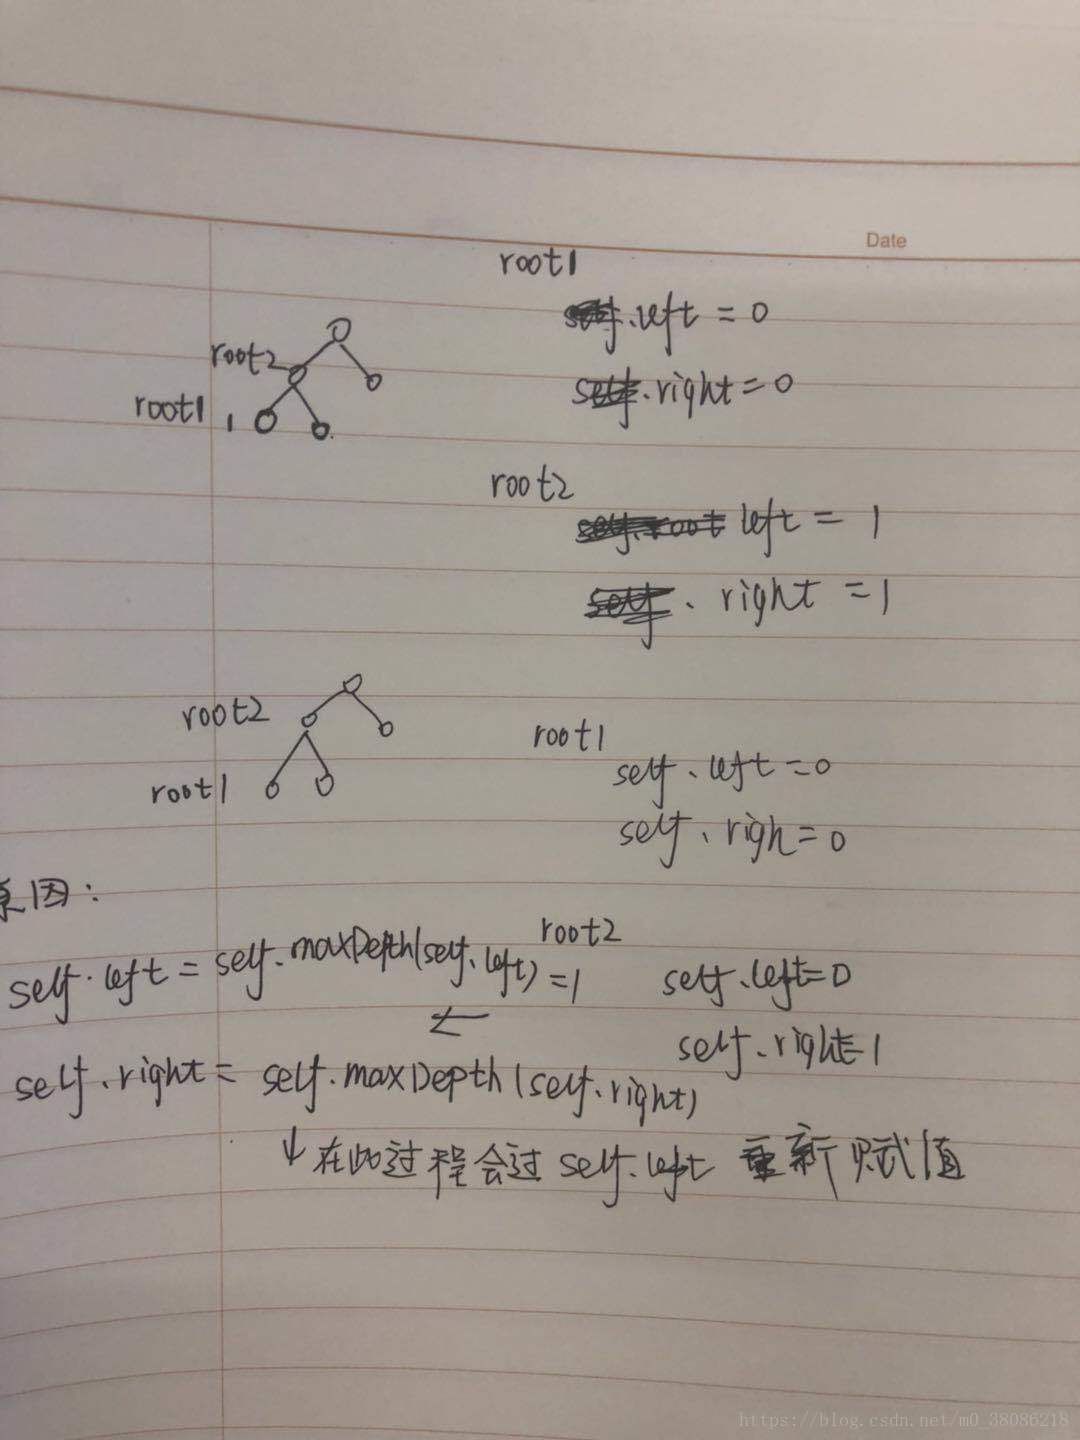 Date
root1
self.left = 0
self.right = 0
root2
root1 1
root2
self.root left = 1
self. right = 1
root2
root1
root1
self.left = 0
self.righ = 0
原因:
self.left = self.maxDepth(self.left) = 1
root2
self.left = 0
self.right = 1
self.right = self.maxDepth(self.right)
在此过程会过 self.left 重新赋值
https://blog.csdn.net/m0_38086218